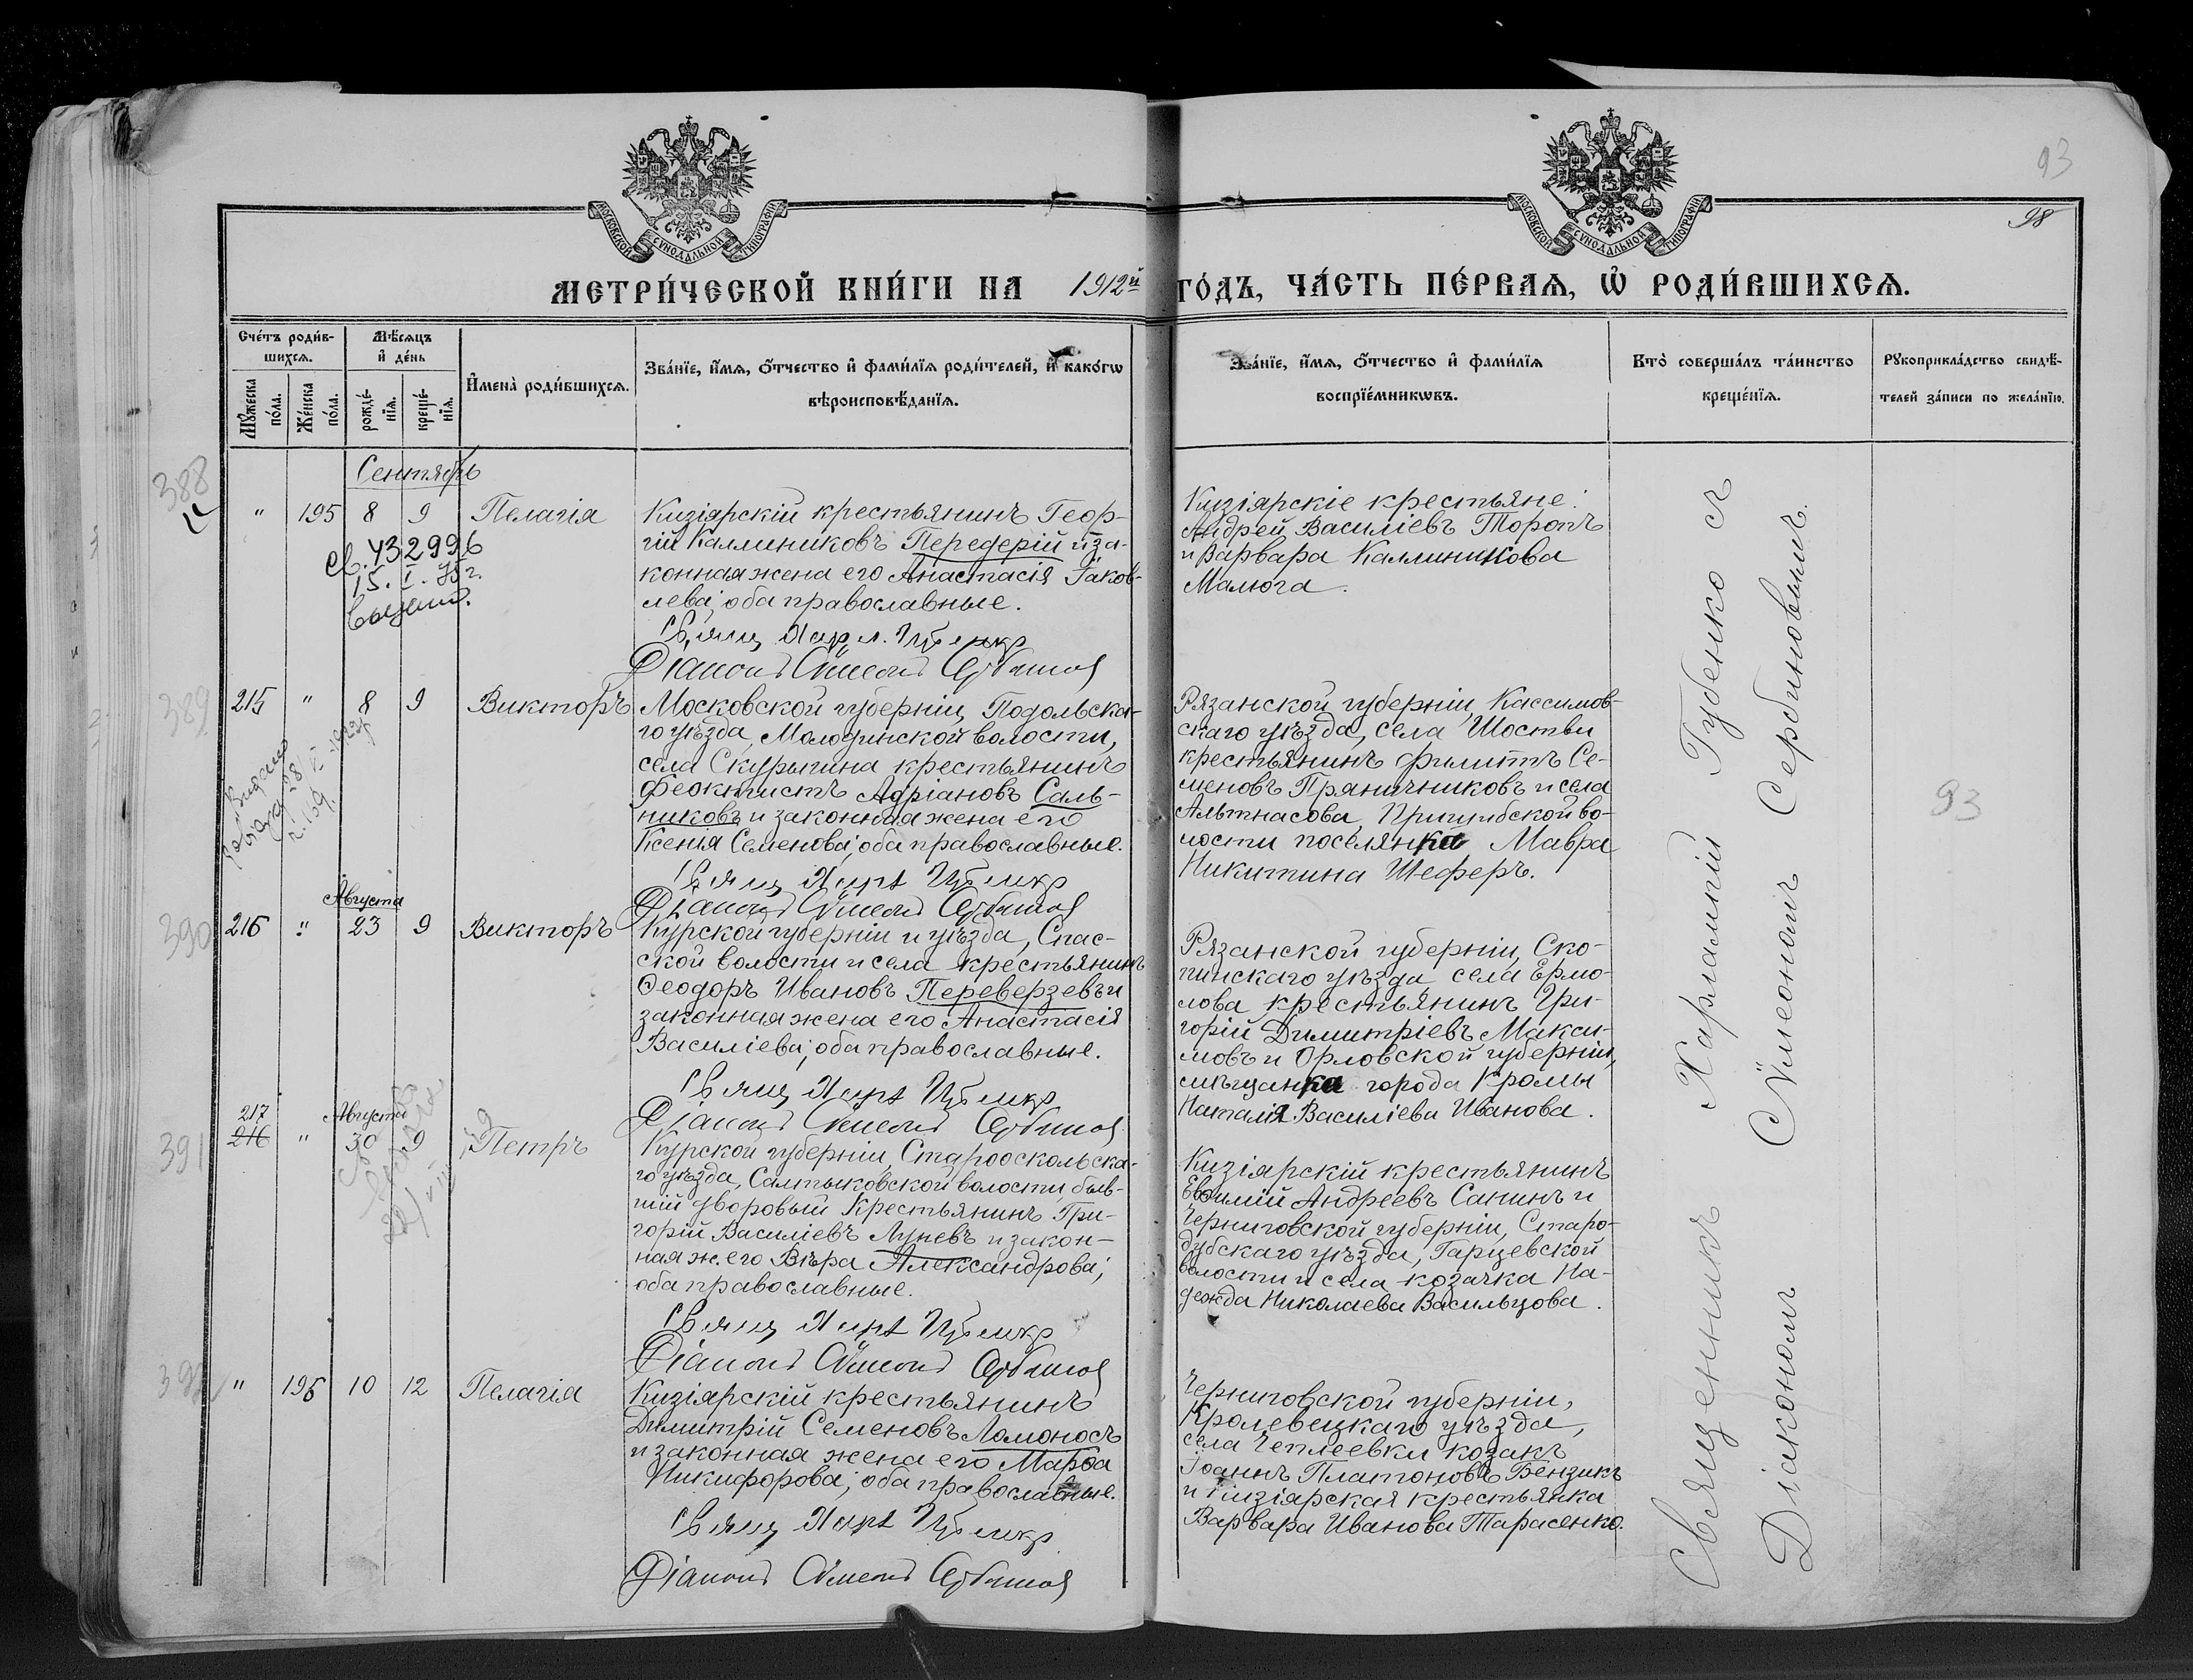 93
98
МОСКОВСКОЙ СѴНОДАЛЬНОЙ ТИПОГРАФІИ
МОСКОВСКОЙ СѴНОДАЛЬНОЙ ТИПОГРАФІИ
МЕТРИ́ЧЕСКОЙ КНИ́ГИ НА 1912й ГО́ДЪ, ЧА́СТЬ ПЕ́РВАѦ, Ѡ҆ РОДИ́ВШИХСѦ.
Сче́тъ роди́в-
шихсѧ.
Мꙋжеска по́ла.
Же́нска по́ла.
Мѣ́сѧцъ
и҆ де́нь
рожде́-
нїѧ.
креще́-
нїѧ.
И҆мена̀ роди́вшихсѧ.
Зва́нїе, и҆́мѧ, ѻ҆́тчество и҆ фами́лїѧ роди́телей, и҆ како́гѡ
вѣроисповѣ́данїѧ.
Зва́нїе, и҆́мѧ, ѻ҆́тчество и҆ фами́лїѧ
воспрїе́мникѡвъ.
Кто̀ соверша́лъ та́инство
креще́нїѧ.
Рꙋкоприкла́дство свидѣ́-
телей за́писи по жела́нїю.
Сентябрь
388
" 195 8 9 Пелагія
св. 432996
15. I. 75г.
Кизіярскій крестьянинъ Геор-
гій Каллиниковъ Передерій и за-
конная жена его Анастасія Іаков-
лева; оба православные.
Свящ. Харл. Губенко
Діаконъ Сѵмеонъ Сербиновъ
Кизіярскіе крестьяне:
Андрей Василіевъ Торопъ
и Варвара Каллиникова
Малюга.
389
215 " 8 9 Викторъ
Московской губерніи, Подольска-
го уѣзда, Молодинской волости,
села Скурыгина крестьянинъ
Феоктистъ Адріановъ Саль-
никовъ и законная жена его
Ксенія Семенова; оба православные.
Свящ. Харл. Губенко
Діаконъ Сѵмеонъ Сербиновъ
Рязанской губерніи, Кассимов-
скаго уѣзда, села Шостьи
крестьянинъ Филиппъ Се-
меновъ Пряничниковъ и села
Альтнасова, Пришибской во-
лости поселянка Мавра
Никитина Шеферъ.
Августа
390
216 " 23 9 Викторъ
Курской губерніи и уѣзда, Спас-
ской волости и села крестьянинъ
Ѳеодоръ Ивановъ Переверзевъ и
законная жена его Анастасія
Василіева; оба православные.
Свящ. Харл. Губенко
Діаконъ Сѵмеонъ Сербиновъ
Рязанской губерніи, Ско-
пинскаго уѣзда села Ермо-
лова крестьянинъ Гри-
горій Димитріевъ Макси-
мовъ и Орловской губерніи,
мѣщанка города Кромы
Наталія Василіева Иванова.
217
Августа
391
216 " 30 9 Петръ
Курской губерніи, Старооскольска-
го уѣзда, Салтыковской волости, быв-
шій дворовый крестьянинъ Гри-
горій Василіевъ Луневъ и закон-
ная ж. его Вѣра Александрова;
оба православные.
Свящ. Харл. Губенко
Діаконъ Сѵмеонъ Сербиновъ
Кизіярскій крестьянинъ
Евѳимій Андреевъ Санинъ и
Черниговской губерніи, Старо-
дубскаго уѣзда, Гарцевской
волости и села козачка На-
дежда Николаева Васильцова.
392
" 196 10 12 Пелагія
Кизіярскій крестьянинъ
Димитрій Семеновъ Ломоносъ
и законная жена его Марѳа
Никифорова; оба православные.
Свящ. Харл. Губенко
Діаконъ Сѵмеонъ Сербиновъ
Черниговской губерніи,
Кролевецкаго уѣзда,
села Чеплеевки козакъ
Іоаннъ Платоновъ Бензикъ
и Кизіярская крестьянка
Варвара Иванова Тарасенко.
Священникъ Харлампій Губенко съ
Діакономъ Сѵмеономъ Сербиновымъ.
93